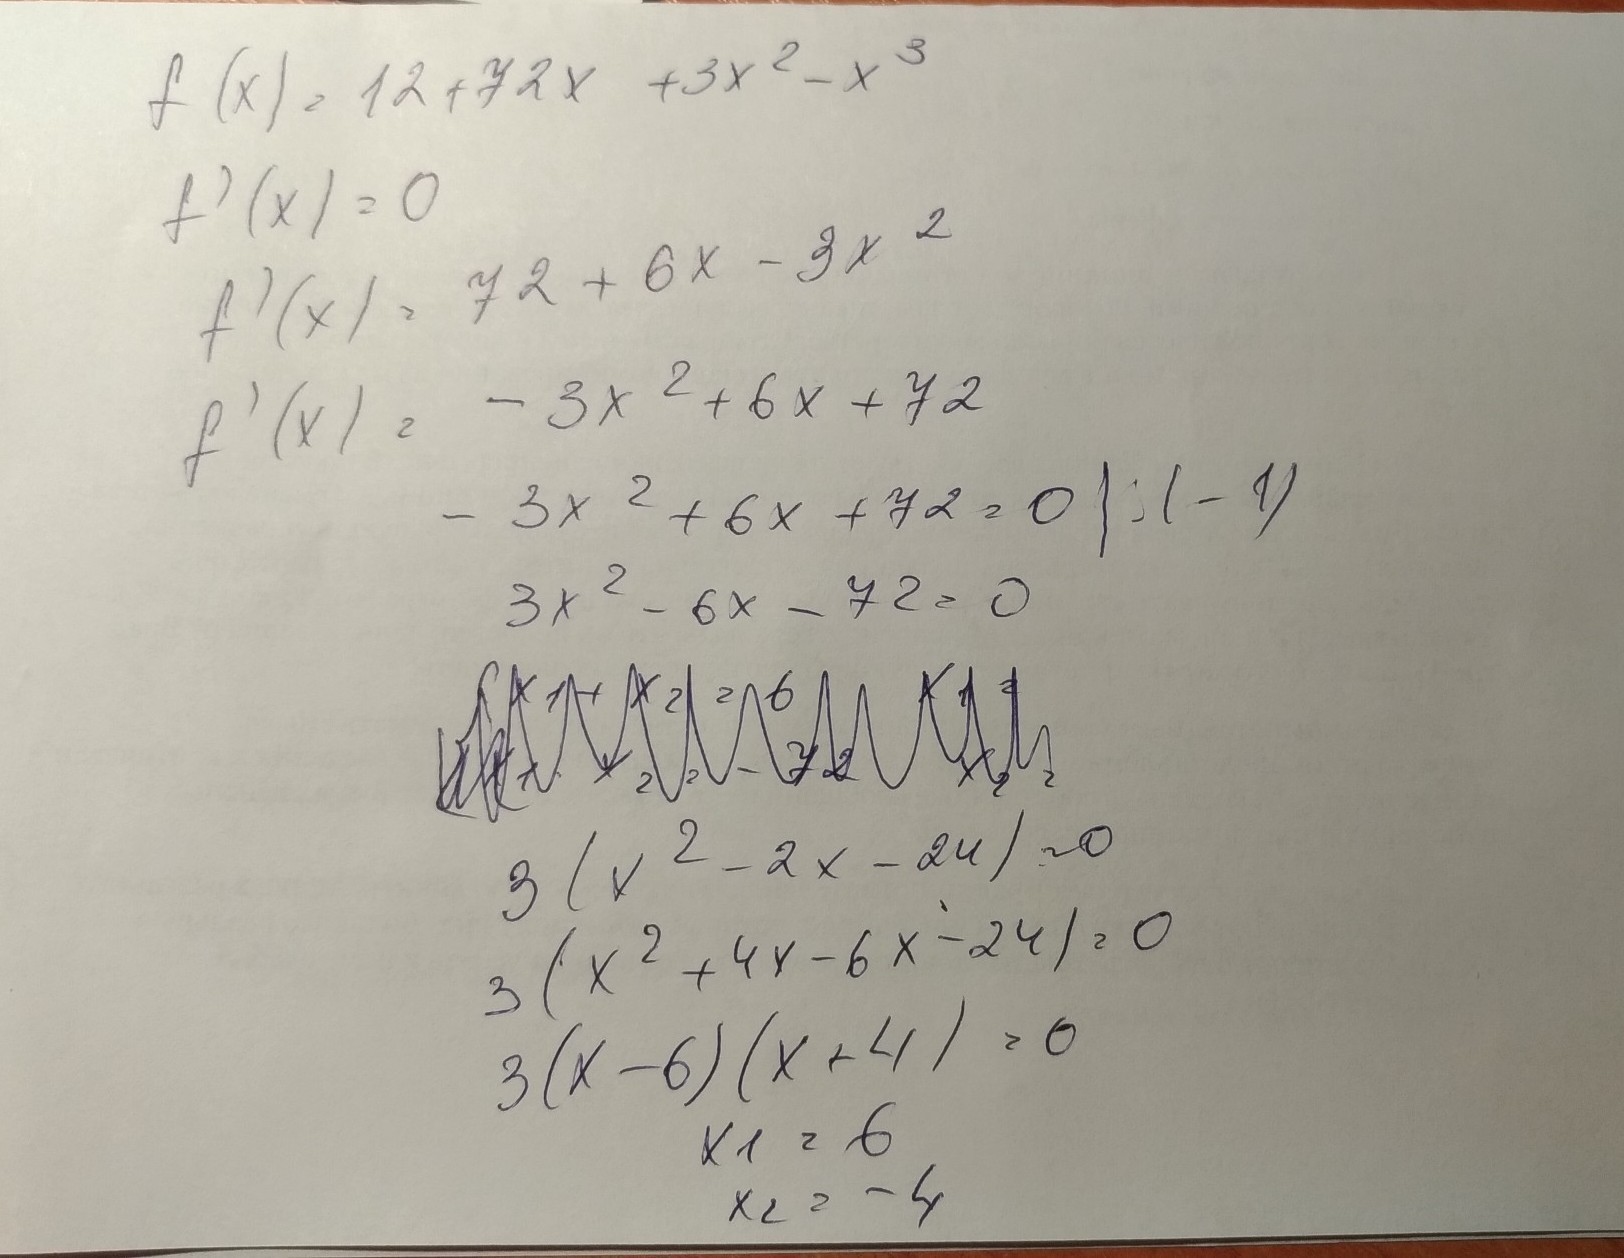 f(x) = 12 + 72x + 3x² - x³
f'(x) = 0
f'(x) = 72 + 6x - 3x²
f'(x) = - 3x² + 6x + 72
- 3x² + 6x + 72 = 0 | : (- 1)
3x² - 6x - 72 = 0
3(x² - 2x - 24) = 0
3(x² + 4x - 6x - 24) = 0
3(x - 6)(x + 4) = 0
x1 = 6
x2 = - 4